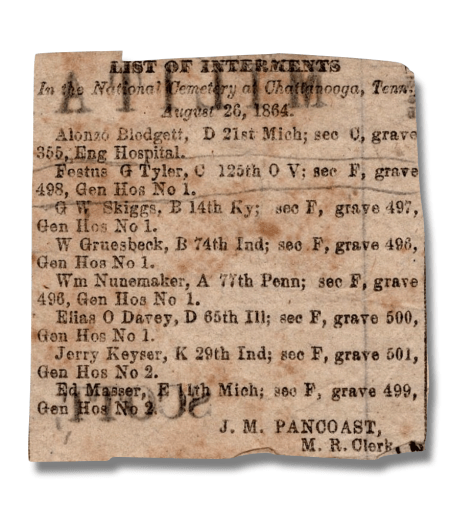 LIST OF INTERMENTS
In the National Cemetery at Chattanooga, Tenn.
August 26, 1864.
Alonzo Blodgett, D 21st Mich; sec C, grave
355, Eng Hospital.
Festus G Tyler, C 125th O V; sec F, grave
498, Gen Hos No 1.
G W Skiggs, B 14th Ky; sec F, grave 497,
Gen Hos No 1.
W Gruesbeck, B 74th Ind; sec F, grave 496,
Gen Hos No 1.
Wm Nunemaker, A 77th Penn; sec F, grave
496, Gen Hos No 1.
Elias O Davey, D 65th Ill; sec F, grave 500,
Gen Hos No 1.
Jerry Keyser, K 29th Ind; sec F, grave 501,
Gen Hos No 2.
Ed Masser, E 11th Mich; sec F, grave 499,
Gen Hos No 2.
J. M. PANCOAST,
M. R. Clerk.